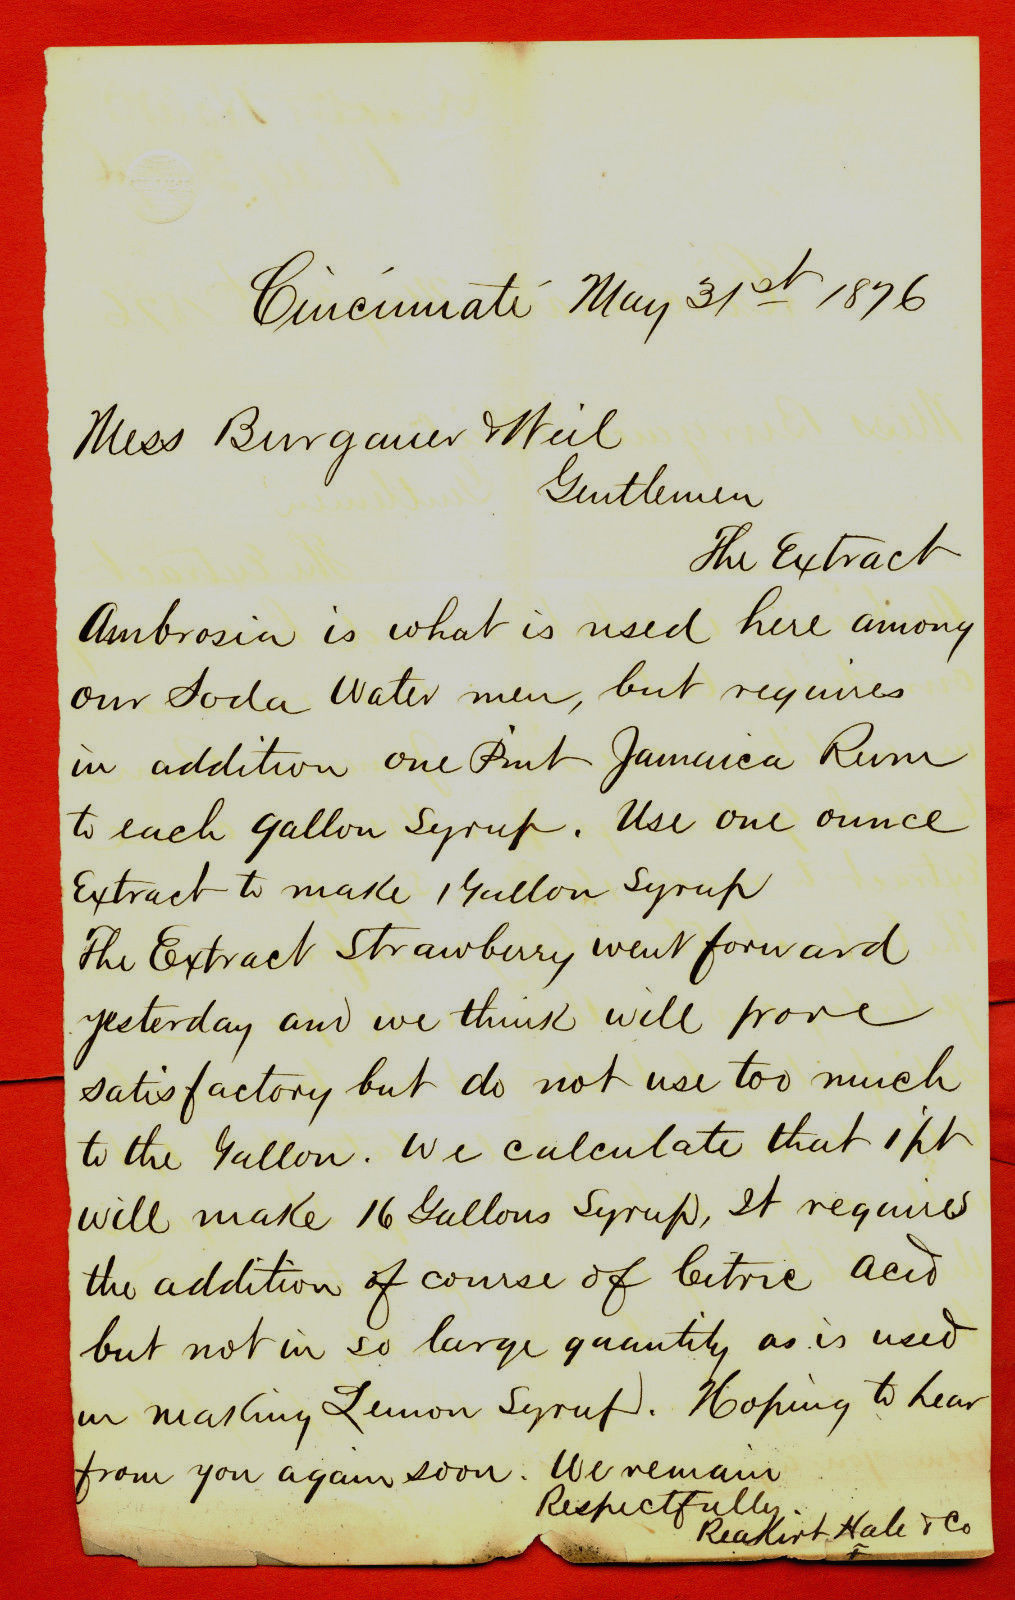 Cincinnati May 31st 1876
Mess Burgauer & Weil
Gentlemen
The Extract
Ambrosia is what is used here among
our Soda Water men, but requires
in addition one Pint Jamaica Rum
to each gallon Syrup. Use one ounce
Extract to make 1 Gallon Syrup
The Extract Strawberry went forward
yesterday and we think will prove
satisfactory but do not use too much
to the Gallon. We calculate that 1 pt
will make 16 Gallons Syrup, It requires
the addition of course of Citric Acid
but not in so large quantity as is used
in making Lemon Syrup. Hoping to hear
from you again soon. We remain
Respectfully.
Reakirt Hale & Co